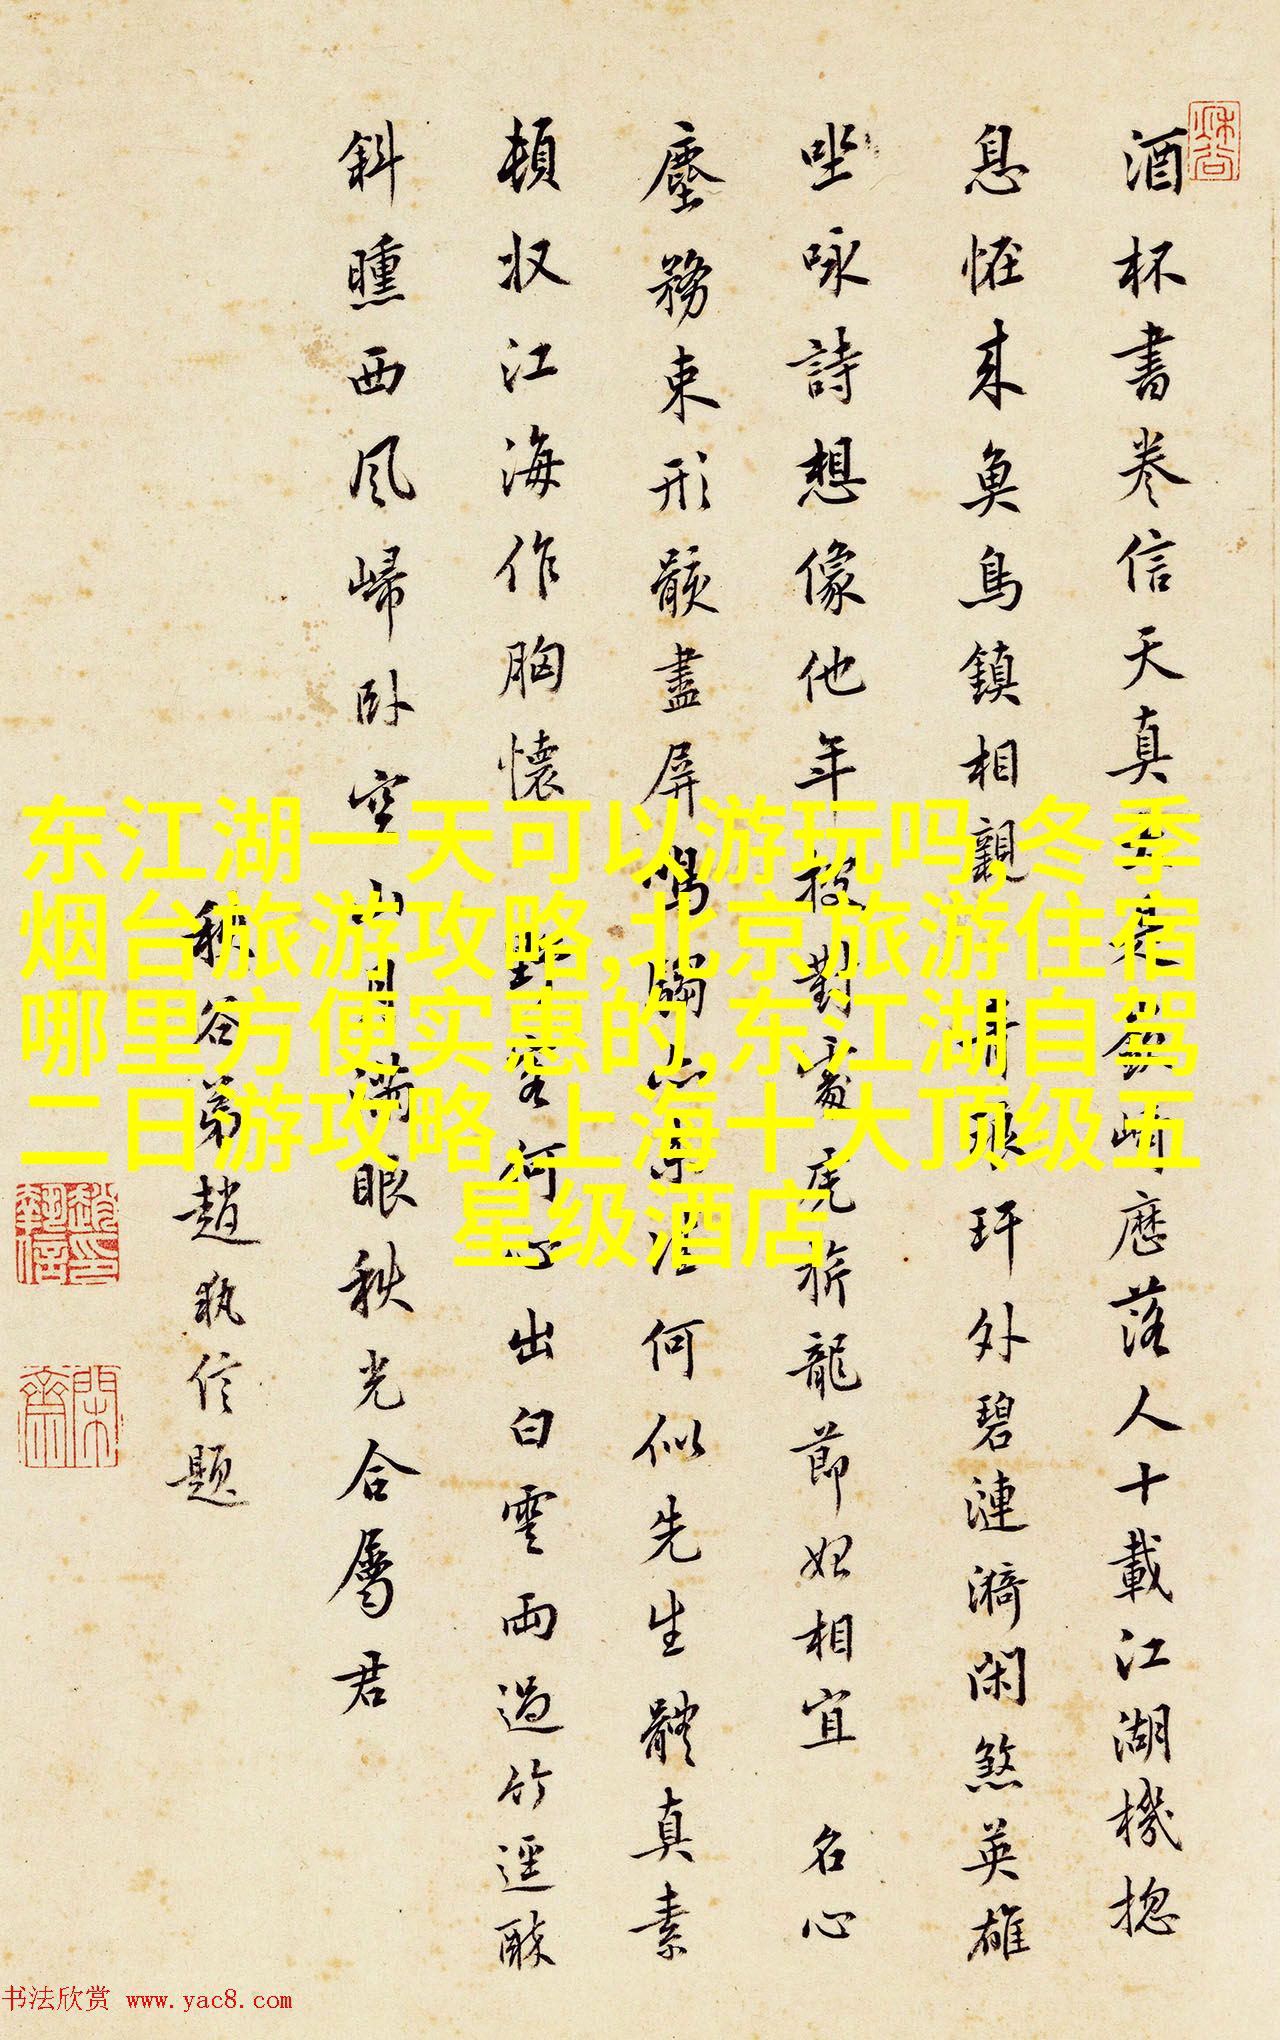 酒杯書卷信天真
厯落人十載江湖機揔
息怪來魚鳥鎮相親
琅玕外碧漣漪閑煞英雄
坐咏詩想像他年
龍節始相宜 名心
塵務束形骸盡屏
何似先生體真素
頓収江海作胸懷
出白雲雨過竹逕酥
斜曛西風歸卧空
滿眼秋光合屬君
秋谷弟趙执信题
东江湖一天可以游玩吗,冬季
烟台旅游攻略,北京旅游住宿
哪里方便实惠的,东江湖自驾
二日游攻略,上海十大顶级五
星级酒店
书法欣赏 www.yac8.com